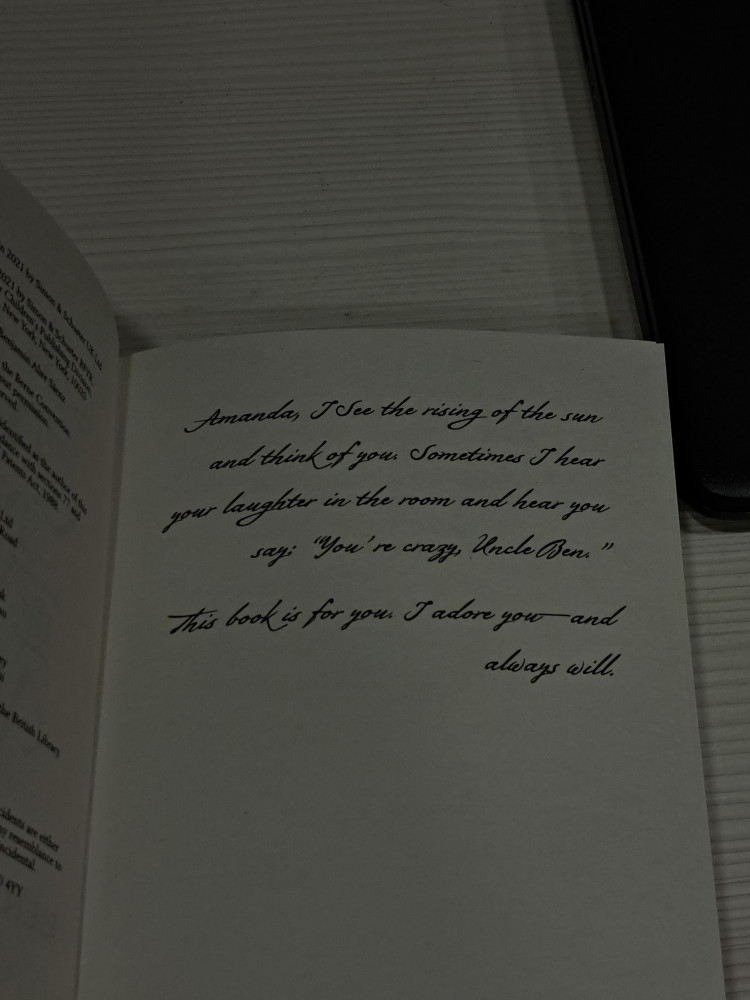 2021 by Simon & Schuster UK Ltd
2021 by Simon & Schuster BFYR,
Children's Publishing Division,
New York, New York, 10020
Benjamin Alire Sáenz
the Berne Convention.
permission.
served.
identified as the author of this
sections 77 and
Patents Act, 1988.
Ltd
Road
the British Library
are either
resemblance to
4YY
Amanda, I See the rising of the sun
and think of you. Sometimes I hear
your laughter in the room and hear you
say: “You’re crazy, Uncle Ben.”
This book is for you. I adore you—and
always will.